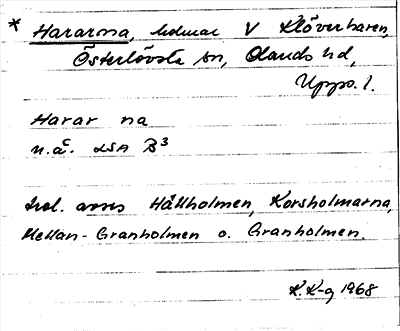 * Hararna, holmar V Klöverharen,
Österlövsta sn, Olands hd,
Upps. l.
Harar na
n.ä. LSA B³
Trol. avses Hällholmen, Korsholmarna,
Mellan-Granholmen o. Granholmen.
K.K-g 1968